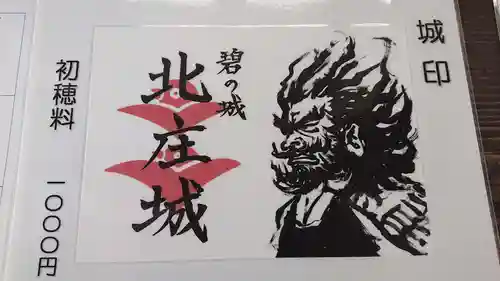 城印
碧の城
北庄城
初穂料
一〇〇〇円